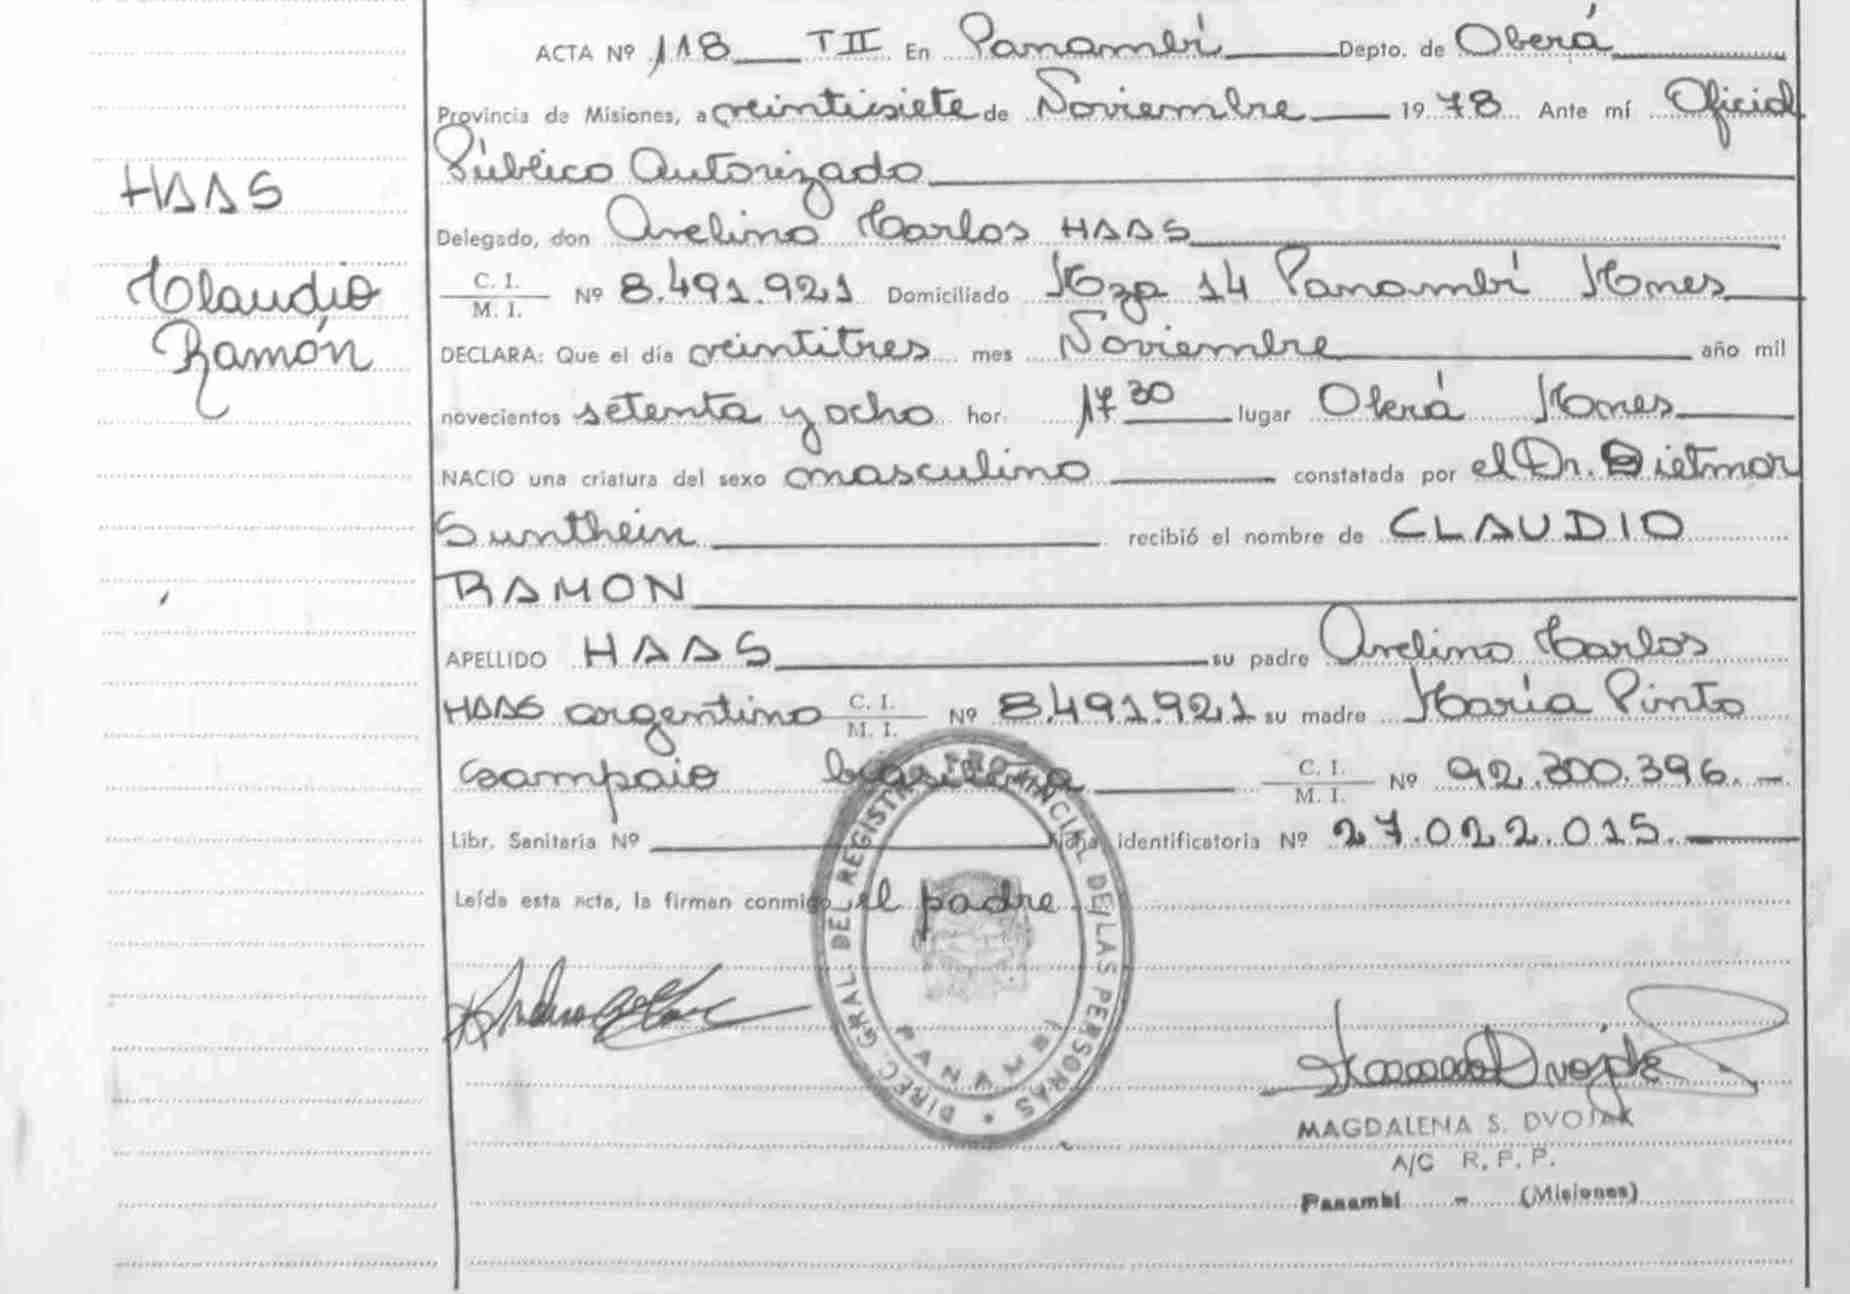 ACTA Nº 118 TII En Panambí Depto. de Oberá
Provincia de Misiones, a veintisiete de Noviembre 1978 Ante mí Oficial
Público Autorizado
HAAS
Delegado, don Avelino Carlos HAAS
Claudio
C. I.
M. I. Nº 8.491.921 Domiciliado Mza 14 Panambí Mnes
Ramón
DECLARA: Que el día veintitres mes Noviembre año mil
novecientos setenta y ocho hor. 17 30 lugar Oberá Mnes
NACIO una criatura del sexo masculino constatada por el Dr. Dietmar
Sunthein recibió el nombre de CLAUDIO
RAMON
APELLIDO HAAS su padre Avelino Carlos
HAAS argentino C. I. M. I. Nº 8.491.921 su madre María Pinto
Sampaio brasileña C. I. M. I. Nº 92.300.396.-
Libr. Sanitaria Nº Ficha identificatoria Nº 27.022.015.
Leída esta acta, la firman conmigo el padre
DIREC. GRAL. DEL REGISTRO PROVINCIAL DE LAS PERSONAS
PANAMBI
MAGDALENA S. DVOJAK
A/C R. P. P.
Panambí - (Misiones)